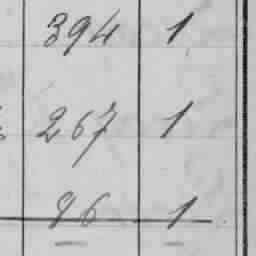 394 1
267 1
86 1